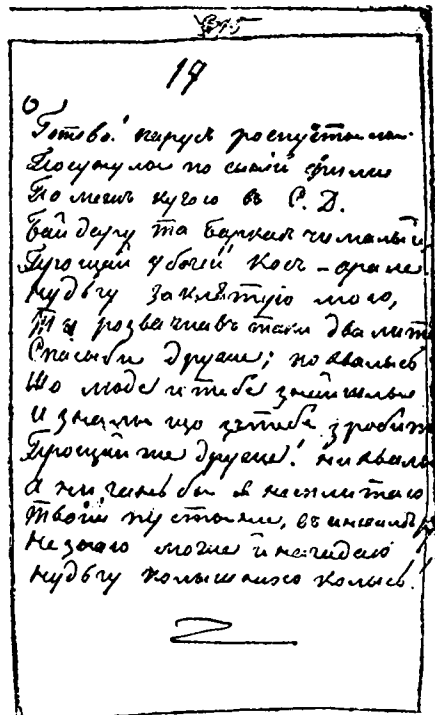 17
Готово! парусъ роспустылы
Посунулы по сыній фыли
Помежъ кугою въ С. Д.
Байдару та баркасъ чималый
Прощай убогій Косъ-арале
нудьгу заклятую мою,
Ты розважавъ такы два лита
Спасыби друже; похвалысь
Що люде и тебе знайшлы
И зналы що зъ тебе зробить
Прощай же друже! ни хвалы
а ни ганьбы я не сплитаю
твоій пустыни, въ иншимъ
не знаю може й нагадаю
нудьгу колышнюю колысь!